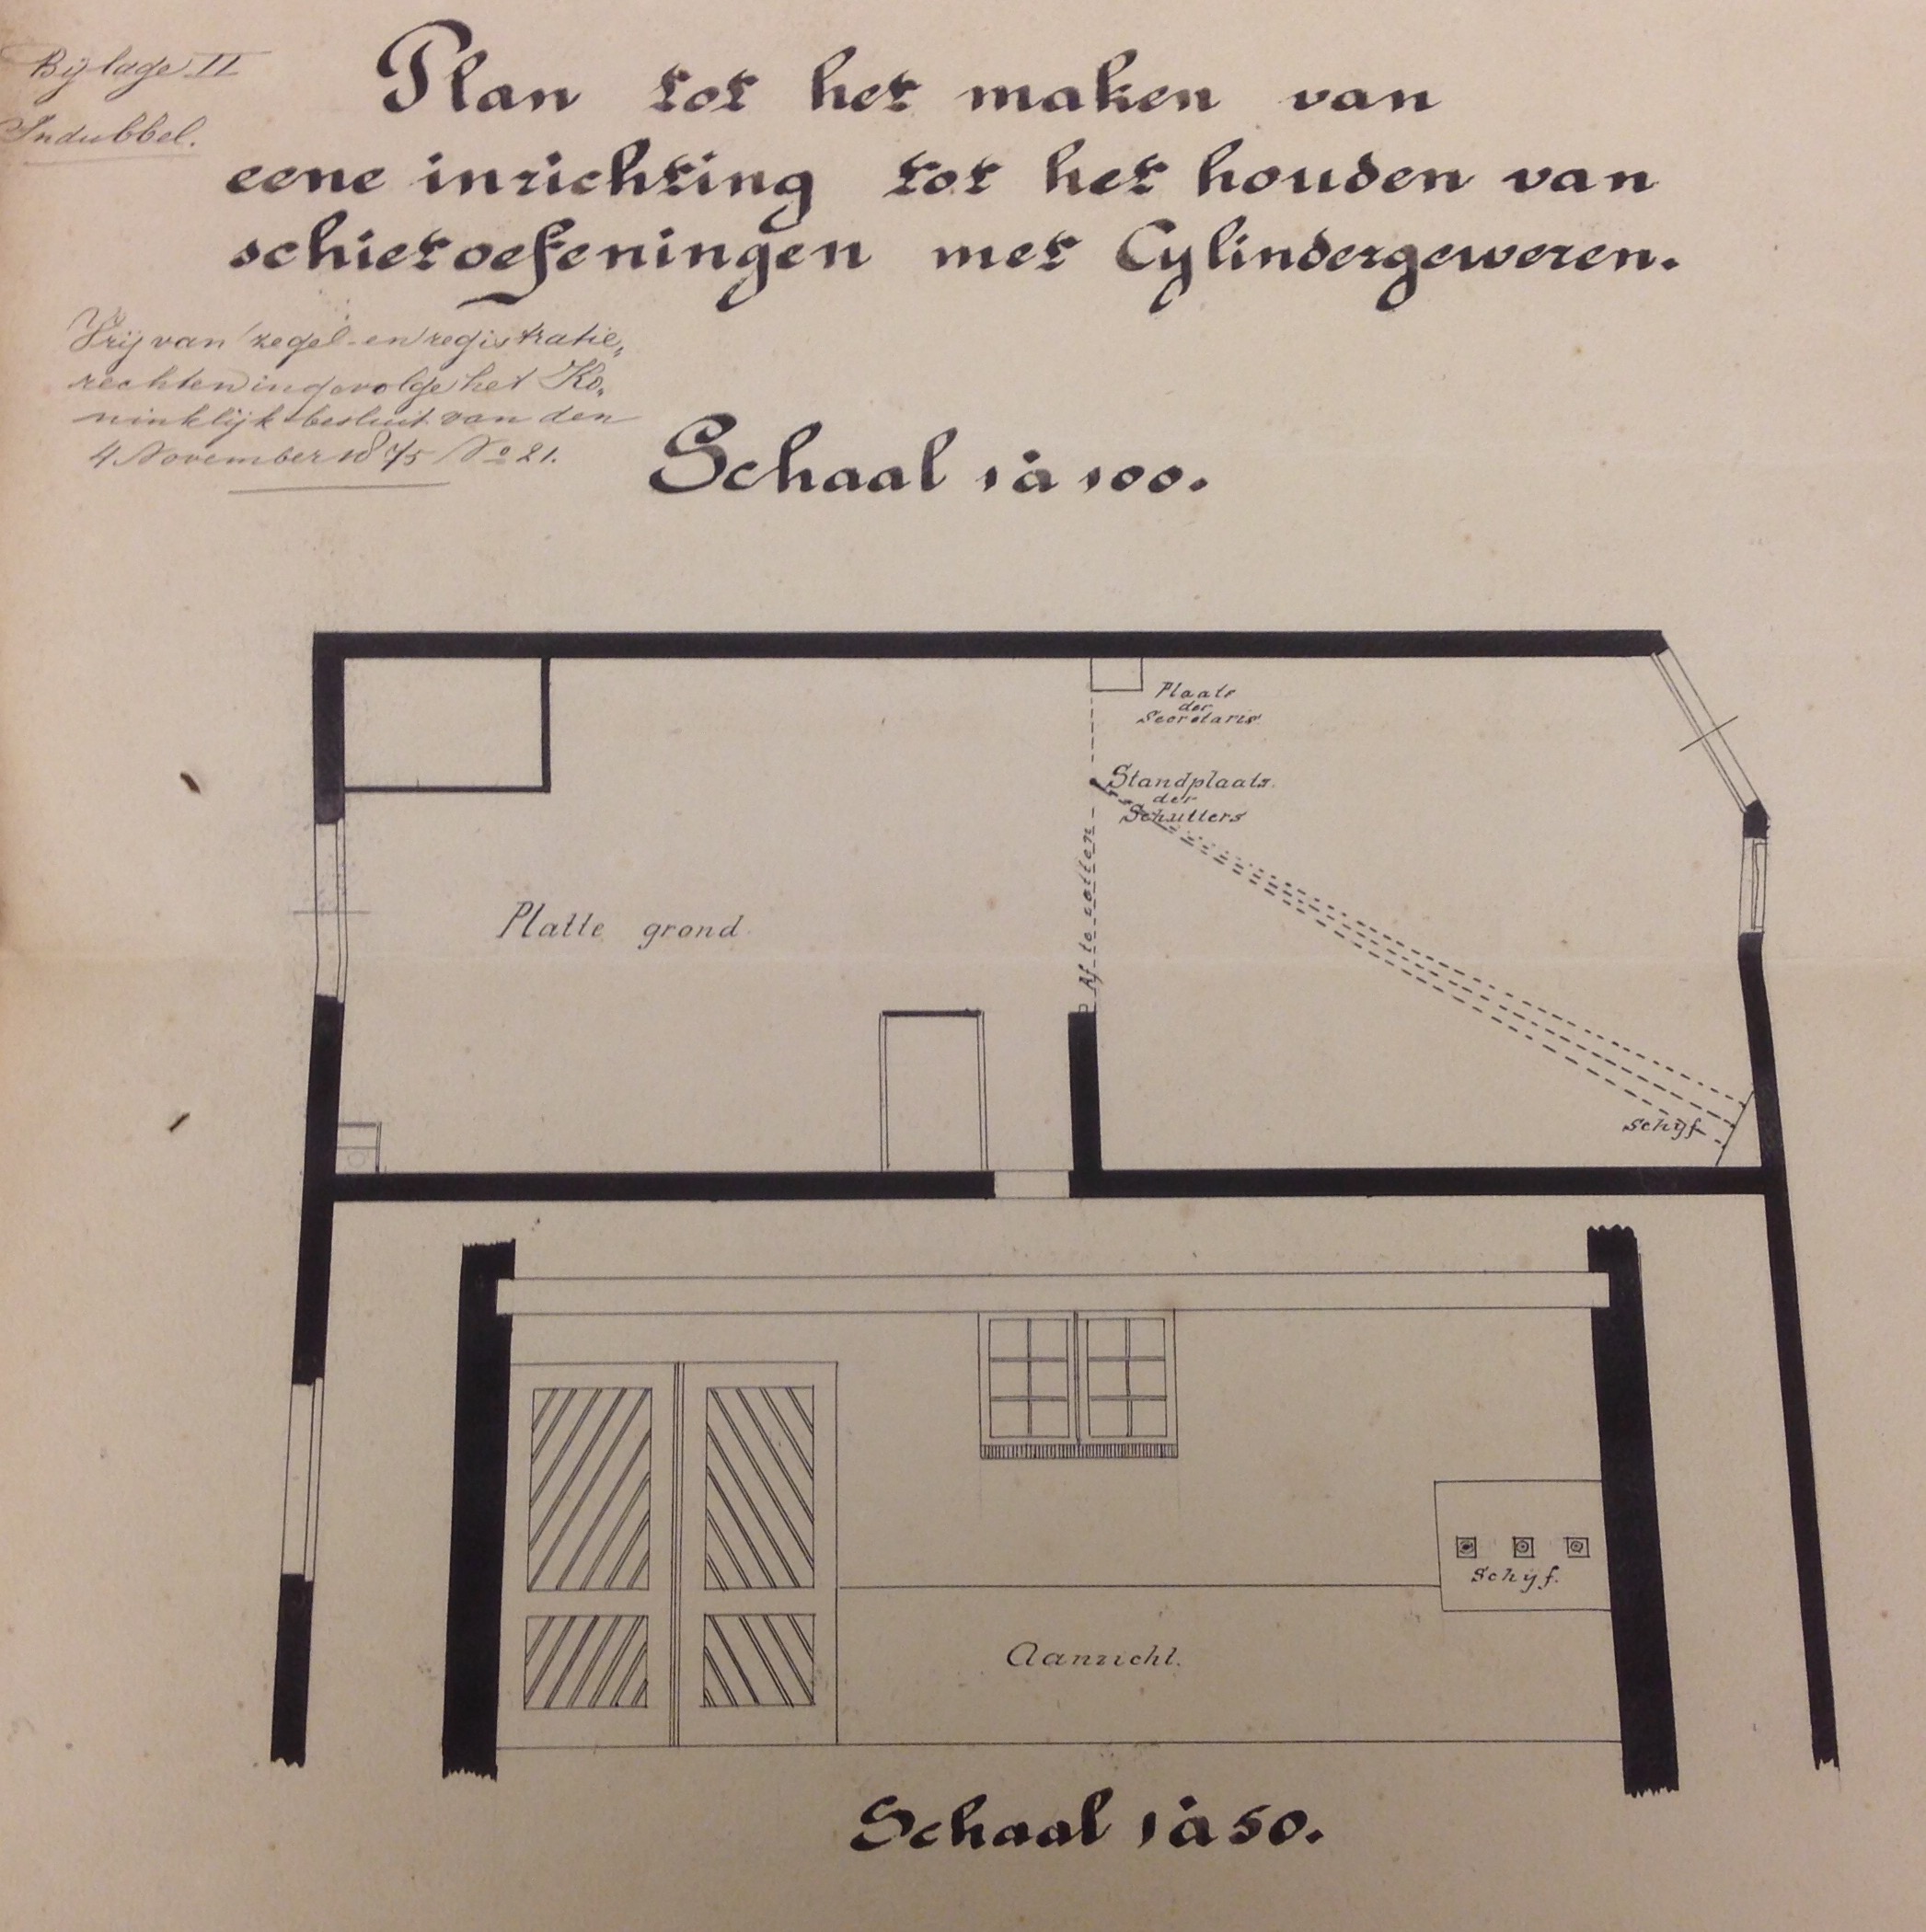 Bijlage II
Indubbel.
Plan tot het maken van
eene inrichting tot het houden van
schietoefeningen met Cylindergeweren.
Vrij van zegel- en registratie,
rechten ingevolge het Ko,
ninklijk besluit van den
4 November 1875 No 21.
Schaal 1 à 100.
Plaats
der
Secretaris
Standplaats.
der
Schutters
Af te zetten
Platte grond.
Schijf
Schijf.
Aanzicht.
Schaal 1 à 50.